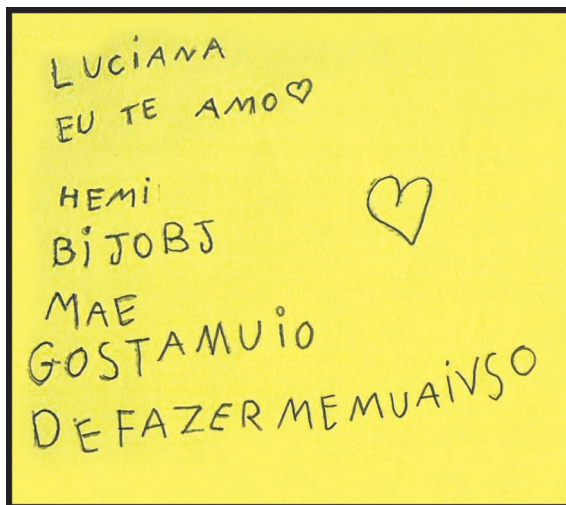 LUCiANA
EU TE AMO♡
HEMi
BiJOBJ
MAE
GOSTAMUiO
DEFAZERMEMUAiVSO